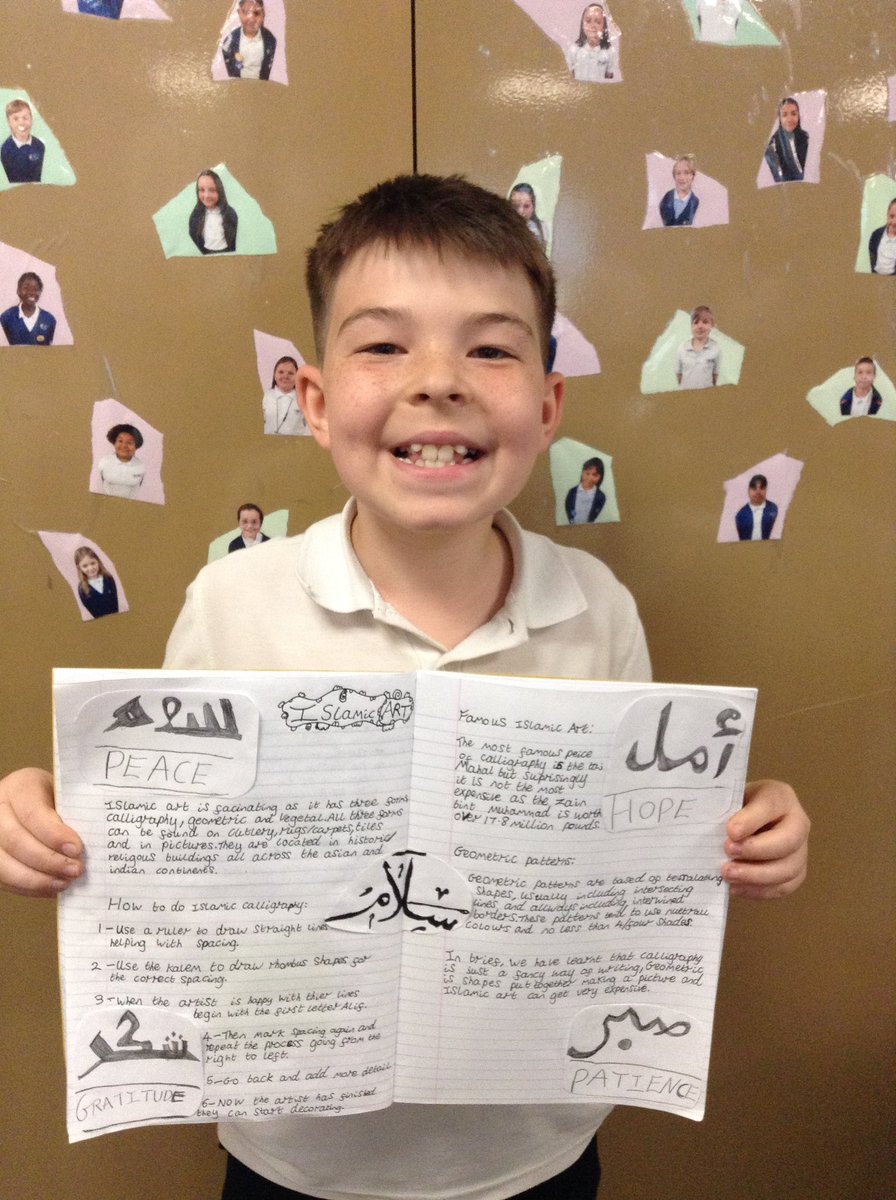 ISLAMIC ART
سلام
PEACE
Islamic art is facinating as it has three forms
calligraphy, geometric and vegetal. All three forms
can be found on cutlery, rugs/carpets, tiles
and in pictures. They are located in historic
religous buildings all across the asian and
indian continents.
How to do Islamic calligraphy:
1-Use a ruler to draw straight lines
helping with spacing.
2-Use the kalem to draw rhombus shapes for
the correct spacing.
3-When the artist is happy with thier lines
begin with the first letter Alif.
4-Then mark spacing again and
repeat the process going from the
right to left.
5-Go back and add more detail
6-Now the artist has finished
they can start decorating.
شكر
GRATITUDE
سلام
Famous Islamic Art:
The most famous peice
of calligraphy is the taj
Mahal but suprisingly
it is not the most
expensive as the Zain
bint Muhammad is worth
over 17.8 million pounds.
أمل
HOPE
Geometric patterns:
Geometric patterns are based of tessalating
shapes, usually including intersecting
lines and allways including interwined
borders. These patterns tend to use nuetrall
colours and no less than 4/four shades.
In brief, we have learnt that calligraphy
is just a fancy way of writing, Geometric
is shapes put together making a picture and
Islamic art can get very expensive.
صبر
PATIENCE